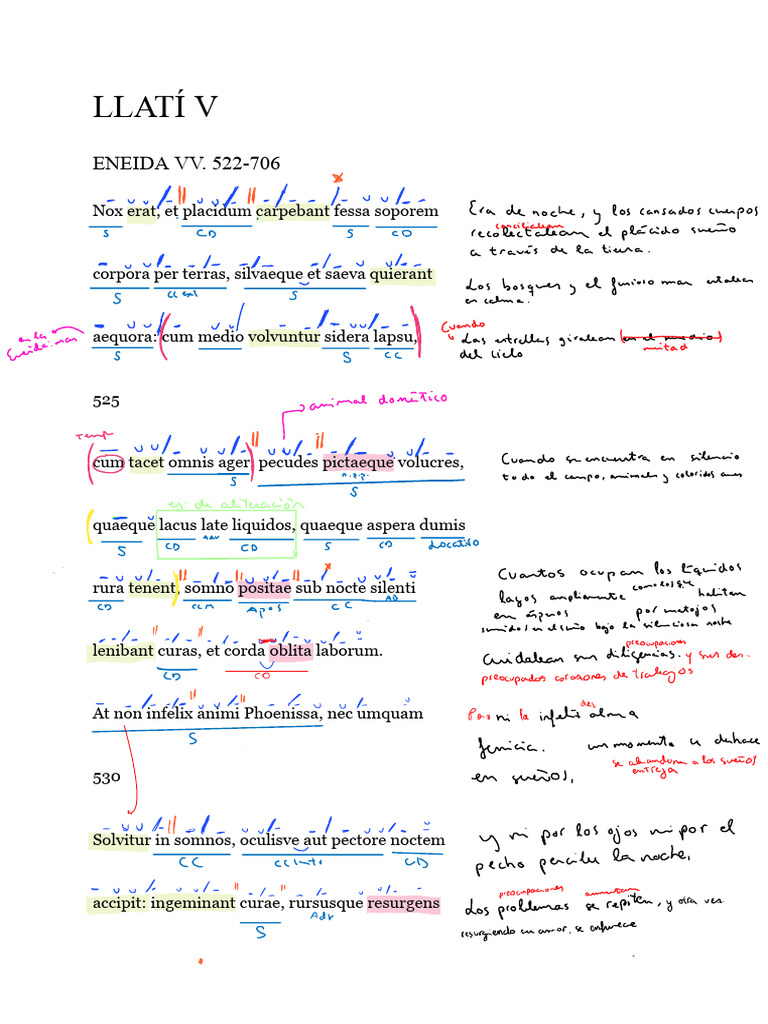 LLATÍ V
ENEIDA VV. 522-706
Nox erat, et placidum carpebant fessa soporem
S CD S CD
Era de noche, y los cansados cuerpos
conciliaban
recolectaban el plácido sueño
a través de la tierra.
corpora per terras, silvaeque et saeva quierant
S S
Los bosques y el furioso mar estaban
en calma.
en la Eneida: mar
aequora: cum medio volvuntur sidera lapsu,
S S CC
Cuando
Las estrellas giraban en el medio
mitad
del cielo
525
animal doméstico
Temp
cum tacet omnis ager, pecudes pictaeque volucres,
S S
Cuando se encuentra en silencio
todo el campo, animales y coloridas aves
ej: de aliteración
quaeque lacus late liquidos, quaeque aspera dumis
S CD Adv CD S CD Locativo
rura tenent, somno positae sub nocte silenti
CD CCM Apos CC
Cuantos ocupan los líquidos
lagos ampliamente como los que habitan
en ásperos por matojos
sumidos en el sueño bajo la silenciosa noche
lenibant curas, et corda oblita laborum.
CD CD
preocupaciones
cuidaban sus diligencias. y sus des
preocupados corazones de trabajos
At non infelix animi Phoenissa, nec umquam
S
Pero ni la infeliz des alma
fenicia. un momento se deshace
se abandona a los sueños
entrega
en sueños,
530
Solvitur in somnos, oculisve aut pectore noctem
CC CC Insto CD
y ni por los ojos ni por el
pecho percibe la noche,
accipit: ingeminant curae, rursusque resurgens
S Adv
preocupaciones aumentan
Los problemas se repiten, y otra vez
resurgiendo un amor, se enfurece